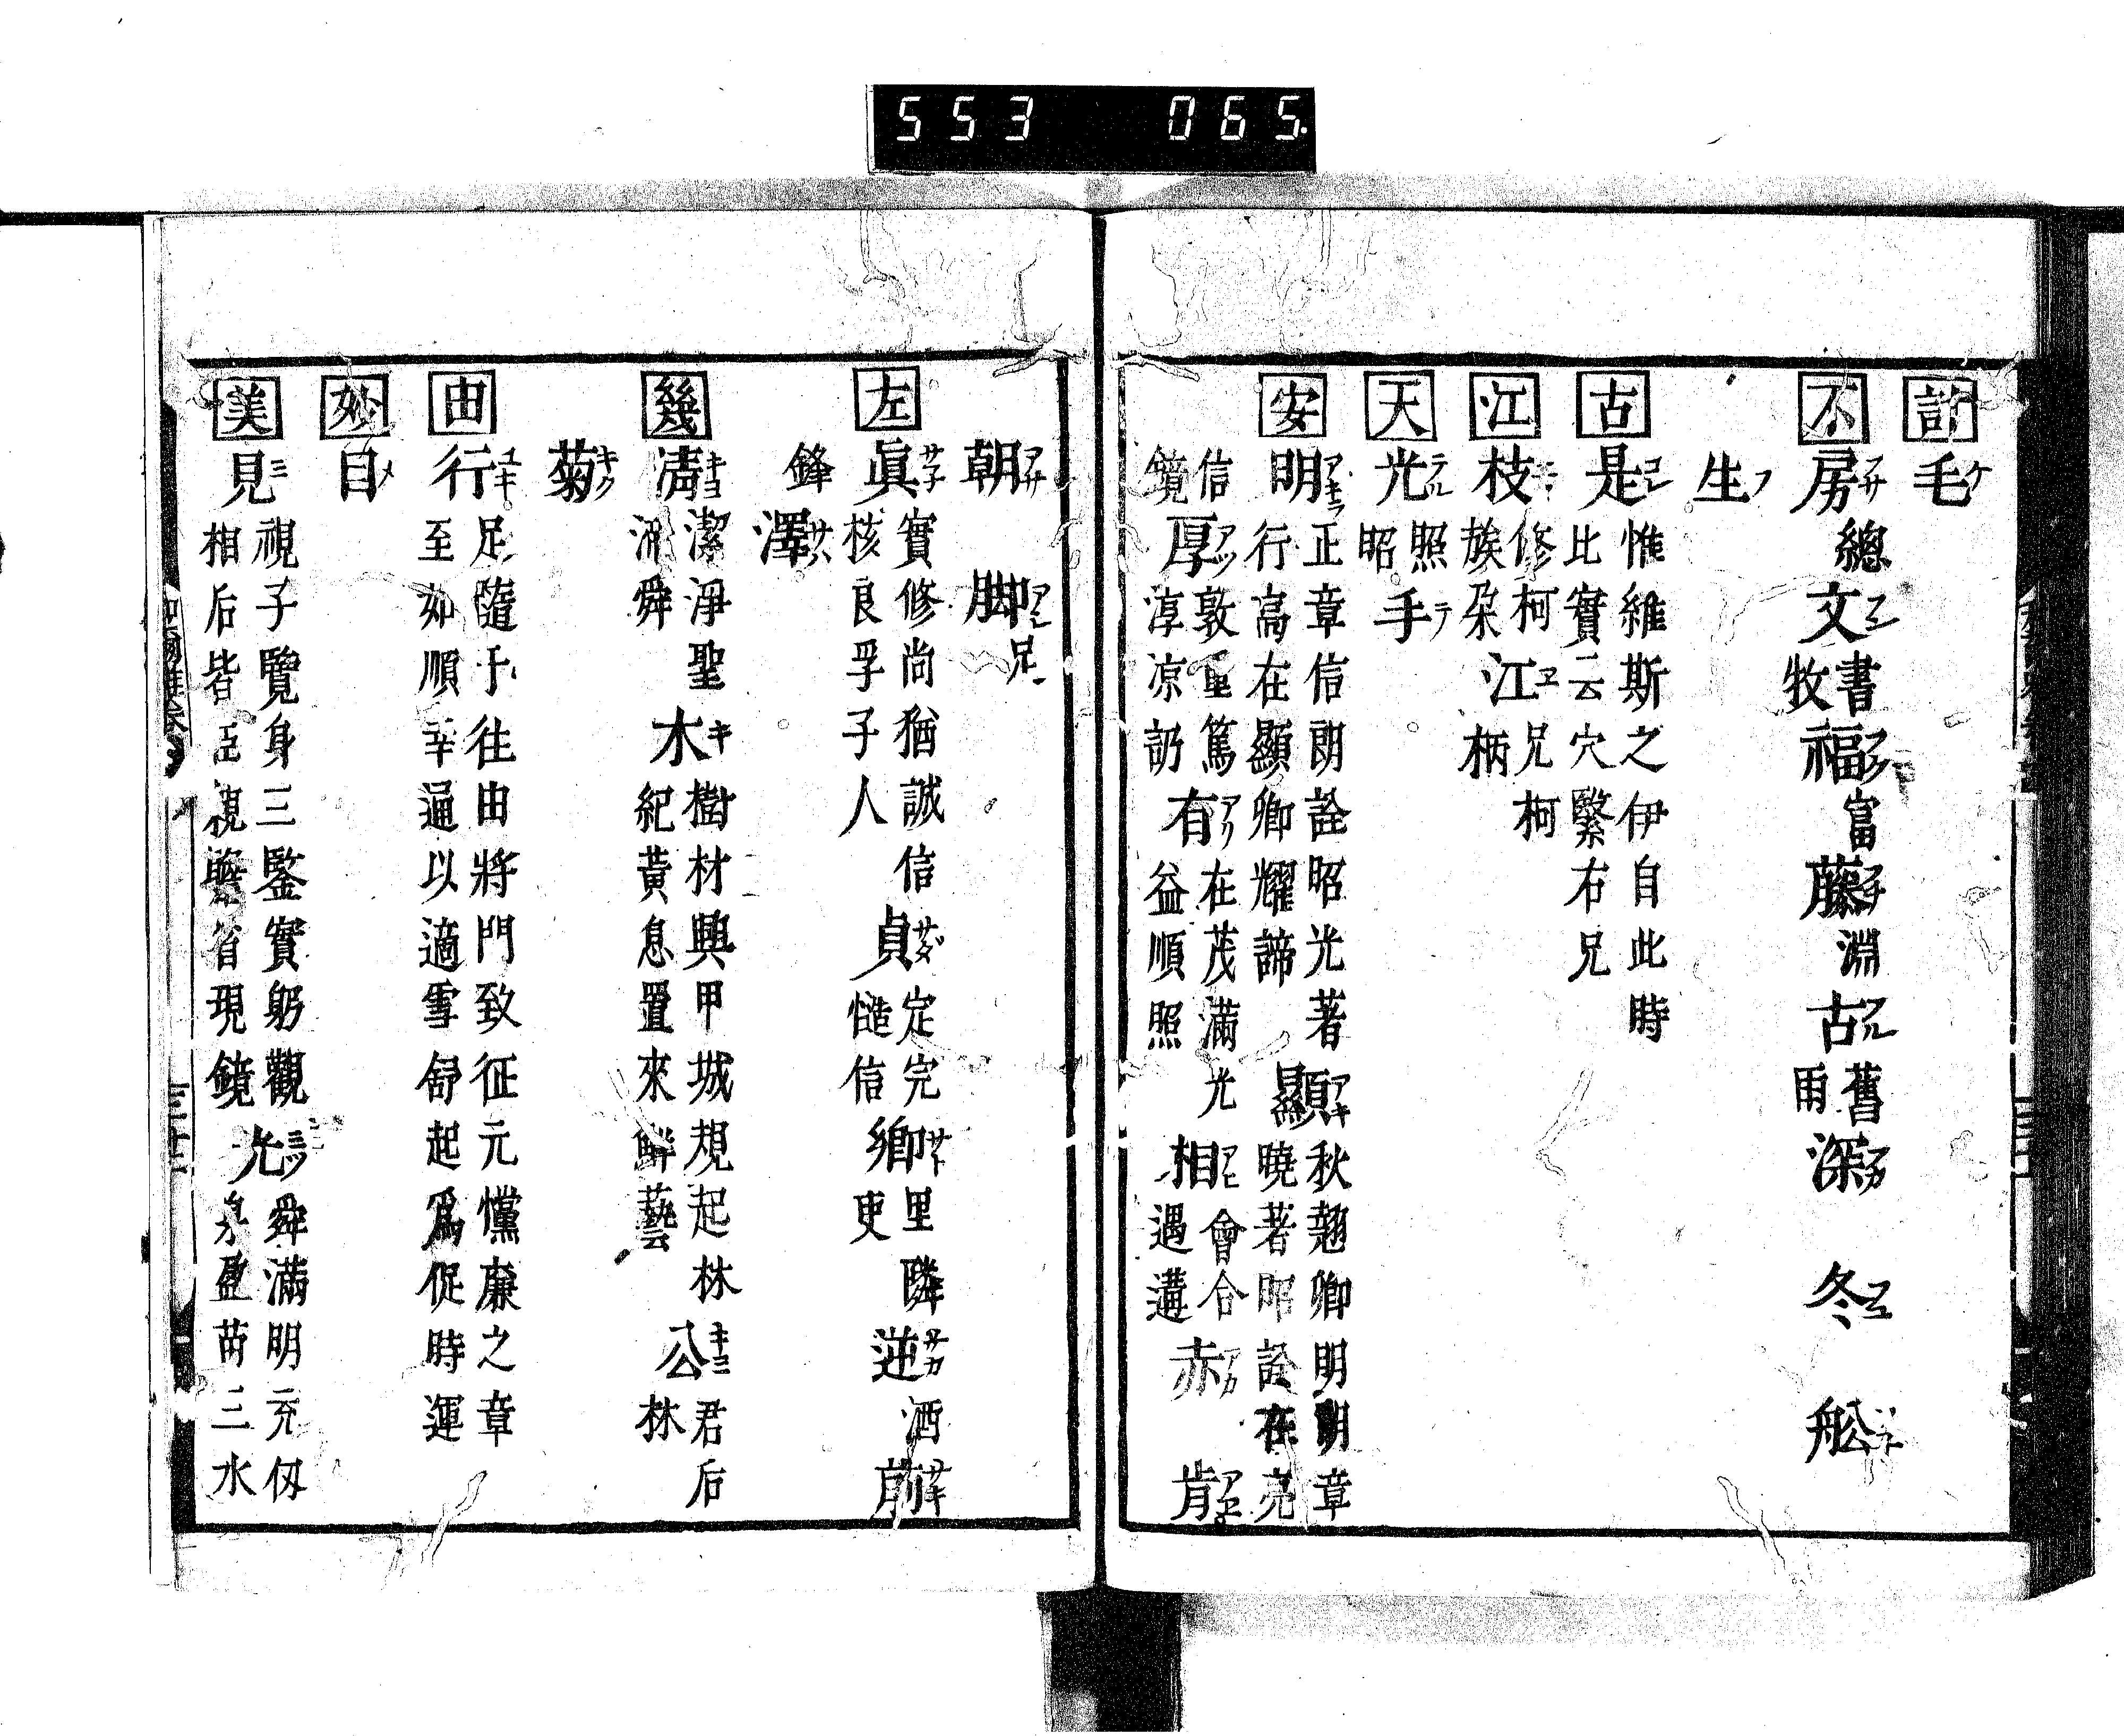 553 065.
計 毛ケ
不 房フサ 總 文フミ 書牧 福フク 富 藤フチ 淵 古フル 舊雨 深フカ 冬フユ 舩フナ
生フ
古 是コレ 惟維斯之伊自此時
比實云穴緊右兄
江 枝エタ 修柯 江エ 兄柯
族朶 柄
天 光テル 照 手テ
昭
安 明アキラ 正章信朗詮昭光著 顯アキ 秋翹卿明朗章
行高在顯卿耀諦 曉著昭詮在亮
信 厚アツ 敦重篤 有アリ 在茂滿光 相アヒ 會合 赤アカ 肯アエ
鏡 淳凉訒 益順照 遇遘
朝アサ 脚アシ 足
左 眞サネ 實修尚猶誠信 貞サダ 定完 郷サト 里隣 逆サカ 酒 前サキ
鋒 核良孚子人 信 吏
澤サハ
幾 淸キヨ 潔淨聖 木キ 樹材興甲城規起林 公キミ 君后
舜 紀黃息置來鮮藝 林
菊キク
由 行ユキ 足隨于往由將門致征元黨廉之章
至如順幸通以適雪舒起爲促時運
妙 目メ
美 見ミ 視子覽身三鑒實躬觀 光ミツ 舜滿明充仭
相后皆臣視省現鏡 泉盈苗三水